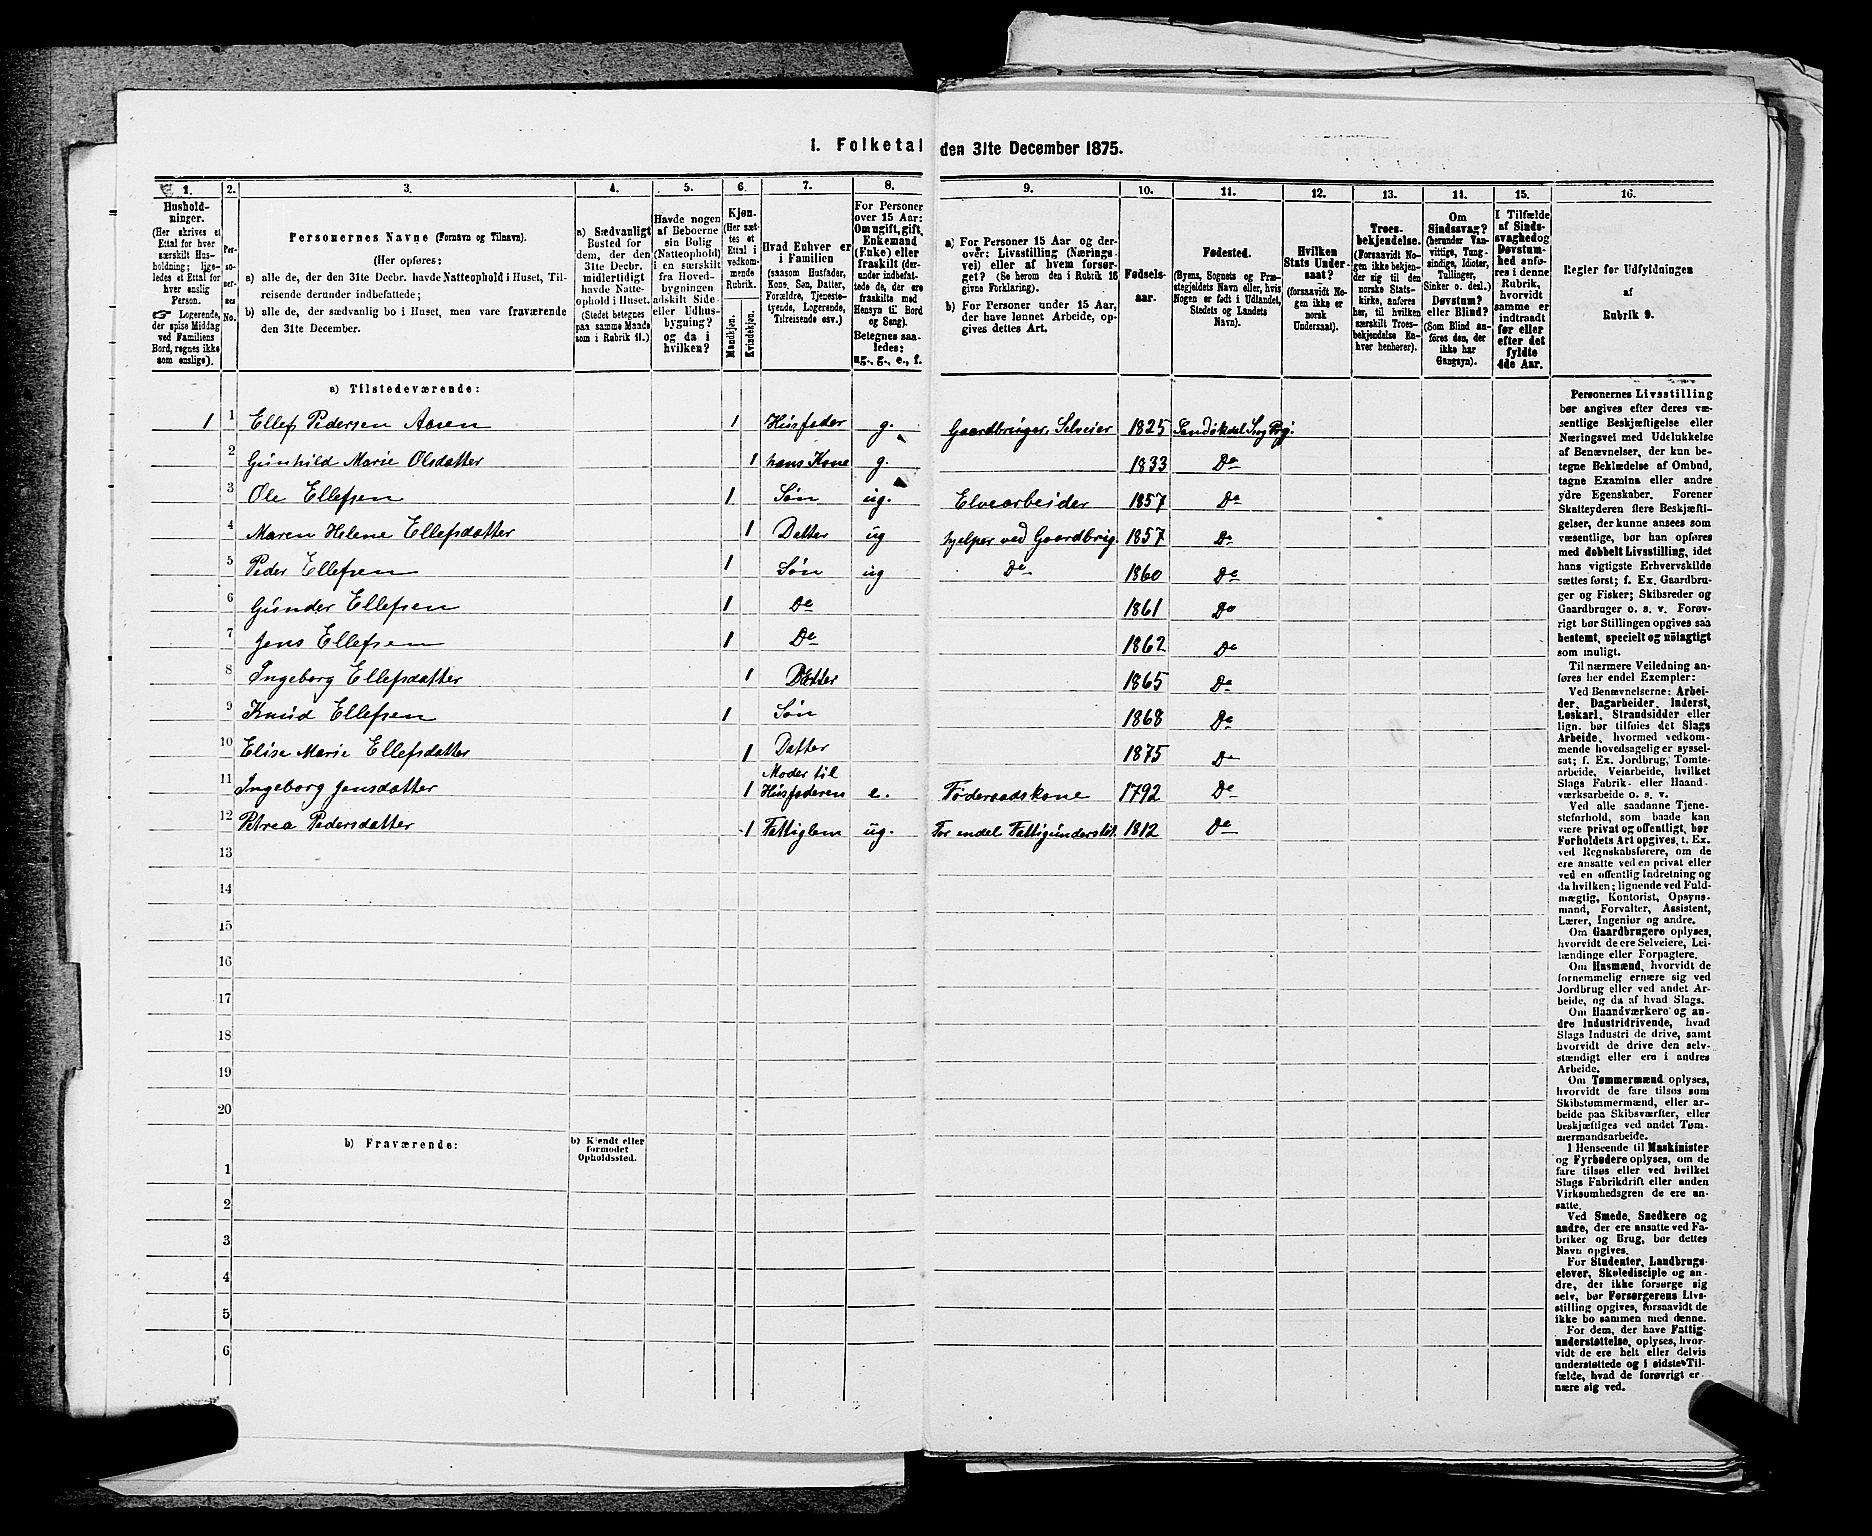 1. Folketal den 31te December 1875.
1. 2. 3. 4. 5. 6. 7. 8. 9. 10. 11. 12. 13. 14. 15. 16.
Hushold-
ninger.
(Her skrives et
Ettal for hver
særskilt Hus-
holdning; lige-
ledes et Ettal for
hver enslig
Person.
☞ Logerende,
der spise Middag
ved Familiens
Bord, regnes ikke
som enslige).
Per-
so-
ner-
nes
No.
Personernes Navne (Fornavn og Tilnavn).
(Her opføres:
a) alle de, der den 31te Decbr. havde Natteophold i Huset, Til-
reisende derunder indbefattede;
b) alle de, der sædvanlig bo i Huset, men vare fraværende
den 31te December.
a) Sædvanligt
Bosted for
dem, der den
31te Decbr.
midlertidigt
havde Natte-
ophold i Huset.
(Stedet betegnes
paa samme Maade
som i Rubrik 11.)
Havde nogen
af Beboerne
sin Bolig
(Natteophold)
i en særskilt
fra Hoved-
bygningen
adskilt Side-
eller Udhus-
bygning?
og da i
hvilken?
Kjøn.
(Her sæt-
tes et
Ettal i
vedkom-
mende
Rubrik.
Mandkjøn.
Kvindekjøn.
Hvad Enhver er
i Familien
(saasom Husfader,
Kone, Søn, Datter,
Forældre, Tjeneste-
tyende, Logerende,
Tilreisende osv.)
For Personer
over 15 Aar:
Om ugift, gift,
Enkemand
(Enke) eller
fraskilt (der-
under indbefat-
tede de, der ere
fraskilte med
Hensyn til Bord
og Seng).
Betegnes saa-
ledes:
ug., g., e., f.
a) For Personer 15 Aar og der-
over: Livsstilling (Nærings-
vei) eller af hvem forsør-
get? (Se herom den i Rubrik 16
givne Forklaring).
b) For Personer under 15 Aar,
der have lønnet Arbeide, op-
gives dettes Art.
Fødsels-
aar.
Fødested.
(Byens, Sognets og Præ-
stegjeldets Navn eller, hvis
Nogen er født i Udlandet,
Stedets og Landets
Navn).
Hvilken
Stats Under-
saat?
(forsaavidt No-
gen ikke er
norsk
Undersaat).
Troes-
bekjendelse.
(Forsaavidt No-
gen ikke bekjen-
der sig til den
norske Stats-
kirke, anføres
her, til hvilken
særskilt Troes-
bekjendelse En-
hver henhører).
Om
Sindssvag?
(herunder Van-
vittige, Tung-
sindige, Idioter,
Tullinger,
Sinker o. desl.)
Døvstum?
eller Blind?
(Som Blind an-
føres den, der
ikke har
Gangsyn).
I Tilfælde
af Sinds-
svaghed og
Døvstum-
hed anfø-
res i denne
Rubrik,
hvorvidt
samme er
indtraadt
før eller
efter det
fyldte
4de Aar.
Regler for Udfyldningen
af
Rubrik 9.
a) Tilstedeværende:
1 1 Ellef Pedersen Aasen 1 Husfader g. Gaardbruger, Selveier 1825 Sandøkdal Sog Prg.
2 Gunhild Marie Olsdatter 1 hans Kone g. 1833 Do
3 Ole Ellefsen 1 Søn ug. Elvearbeider 1857 Do
4 Maren Helene Ellefsdatter 1 Datter ug hjelper ved Gaardbrug. 1857 Do
5 Peder Ellefsen 1 Søn ug Do 1860 Do
6 Gunder Ellefsen 1 Do 1861 Do
7 Jens Ellefsen 1 Do 1862 Do
8 Ingeborg Ellefsdatter 1 Datter 1865 Do
9 Knud Ellefsen 1 Søn 1868 Do
10 Elise Marie Ellefsdatter 1 Datter 1875 Do
11 Ingeborg Jensdatter 1 Moder til Husfaderen e. Føderaadskone 1792 Do
12 Petrea Pedersdatter 1 Fattiglem ug. For endel Fattigunderstøt. 1812 Do
13
14
15
16
17
18
19
20
b) Fraværende:
b) Kjendt eller
formodet
Opholdssted.
1
2
3
4
5
6
Personernes Livsstilling
bør angives efter deres væ-
sentlige Beskjæftigelse eller
Næringsvei med Udelukkelse
af Benævnelser, der kun be-
tegne Beklædelse af Ombud,
tagne Examina eller andre
ydre Egenskaber. Forener
Skatteyderen flere Beskjæfti-
gelser, der kunne ansees som
væsentlige, bør han opføres
med dobbelt Livsstilling, idet
hans vigtigste Erhvervskilde
sættes først; f. Ex. Gaardbru-
ger og Fisker; Skibsreder og
Gaardbruger o. s. v. Forøv-
rigt bør Stillingen opgives saa
bestemt, specielt og nöiagtigt
som muligt.
Til nærmere Veiledning an-
føres her endel Exempler:
Ved Benævnelserne: Arbei-
der, Dagarbeider, Inderst,
Løskarl, Strandsidder eller
lign. bør tilføies det Slags
Arbeide, hvormed vedkom-
mende hovedsagelig er syssel-
sat; f. Ex. Jordbrug, Tomte-
arbeide, Veiarbeide, hvilket
Slags Fabrik- eller Haand-
værksarbeide o. s. v.
Ved alle saadanne Tjene-
steforhold, som baade kan
være privat og offentligt, bør
Forholdets Art opgives, t. Ex.
ved Regnskabsførere, om de
ere ansatte ved en privat eller
ved en offentlig Indretning og
da hvilken; lignende ved Fuld-
mægtig, Kontorist, Opsyns-
mand, Forvalter, Assistent,
Lærer, Ingeniør og andre.
Om Gaardbrugere oplyses,
hvorvidt de ere Selveiere, Lei-
lændinge eller Forpagtere.
Om Husmænd, hvorvidt de
fornemmelig ernære sig ved
Jordbrug eller ved andet Ar-
beide, og da af hvad Slags.
Om Haandværkere og an-
dre Industridrivende, hvad
Slags Industri de drive, samt
hvorvidt de drive den selv-
stændigt eller ere i andres
Arbeide.
Om Tømmermænd oplyses,
hvorvidt de fare tilsøs som
Skibstømmermænd, eller ar-
beide paa Skibsværfter, eller
beskjæftiges ved andet Tøm-
mermandsarbeide.
I Henseende til Maskinister
og Fyrbødere oplyses, om de
fare tilsøs eller ved hvilket
Slags Fabrikdrift eller anden
Virksomhedsgren de ere an-
satte.
Ved Smede, Snedkere og
andre, der ere ansatte ved Fa-
briker og Brug, bør dettes
Navn opgives.
For Studenter, Landbrugs-
elever, Skoledisciple og an-
dre, der ikke forsørge sig
selv, bør Forsørgerens Livs-
stilling opgives, forsaavidt de
ikke bo sammen med denne.
For dem, der have Fattig-
understøttelse, oplyses, hvor-
vidt de ere helt eller delvis
understøttede og i sidste Til-
fælde, hvad de forøvrigt er-
nære sig ved.